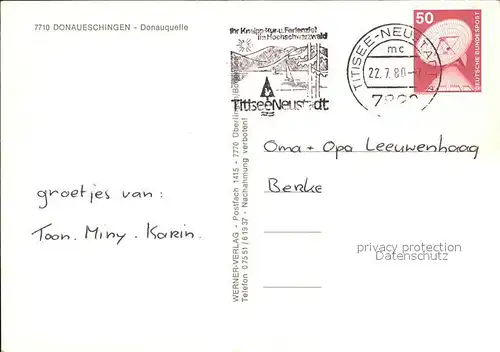 7710 DONAUESCHINGEN - Donauquelle
Ihr Kneipp-Kur-u. Ferienziel
im Hochschwarzwald
Titisee Neustadt
TITISEE-NEUSTADT
mc
22.7.80
50
DEUTSCHE BUNDESPOST
WERNER-VERLAG - Postfach 1415 - 7770 Überlingen/Bodensee
Telefon 07551/61937 - Nachahmung verboten!
groetjes van:
Toon. Miny. Karin.
Oma + Opa Leeuwenhaag
Berke
privacy protection
Datenschutz